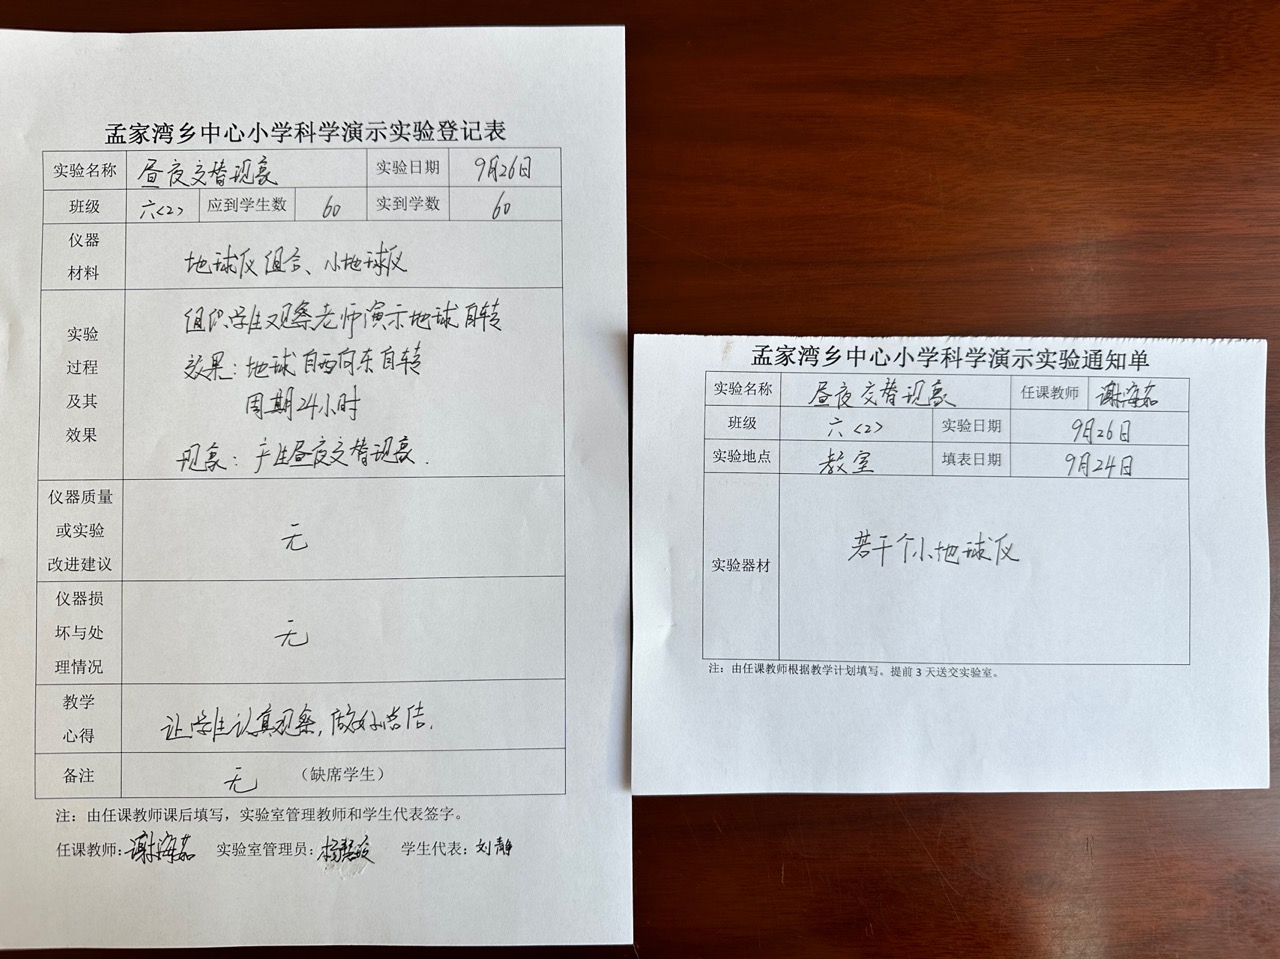 孟家湾乡中心小学科学演示实验登记表
实验名称 昼夜交替现象 实验日期 9月26日
班级 六<2> 应到学生数 60 实到学数 60
仪器
材料
地球仪组合、小地球仪
实验
过程
及其
效果
组织学生观察老师演示地球自转
效果：地球自西向东自转
周期24小时
现象：产生昼夜交替现象.
仪器质量
或实验
改进建议
无
仪器损
坏与处
理情况
无
教学
心得
让学生认真观察，做好总结.
备注 无 （缺席学生）
注：由任课教师课后填写，实验室管理教师和学生代表签字。
任课教师：谢海茹 实验室管理员： 学生代表：刘静
孟家湾乡中心小学科学演示实验通知单
实验名称 昼夜交替现象 任课教师 谢海茹
班级 六<2> 实验日期 9月26日
实验地点 教室 填表日期 9月24日
实验器材 若干个小地球仪
注：由任课教师根据教学计划填写。提前3天送交实验室。